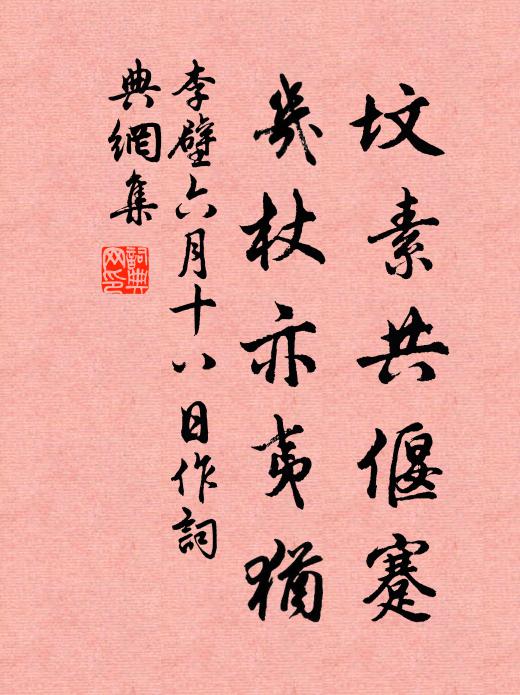 坟素共偃蹇
几杖亦夷犹
李壁六月十八日作词
典網集
詞典网印